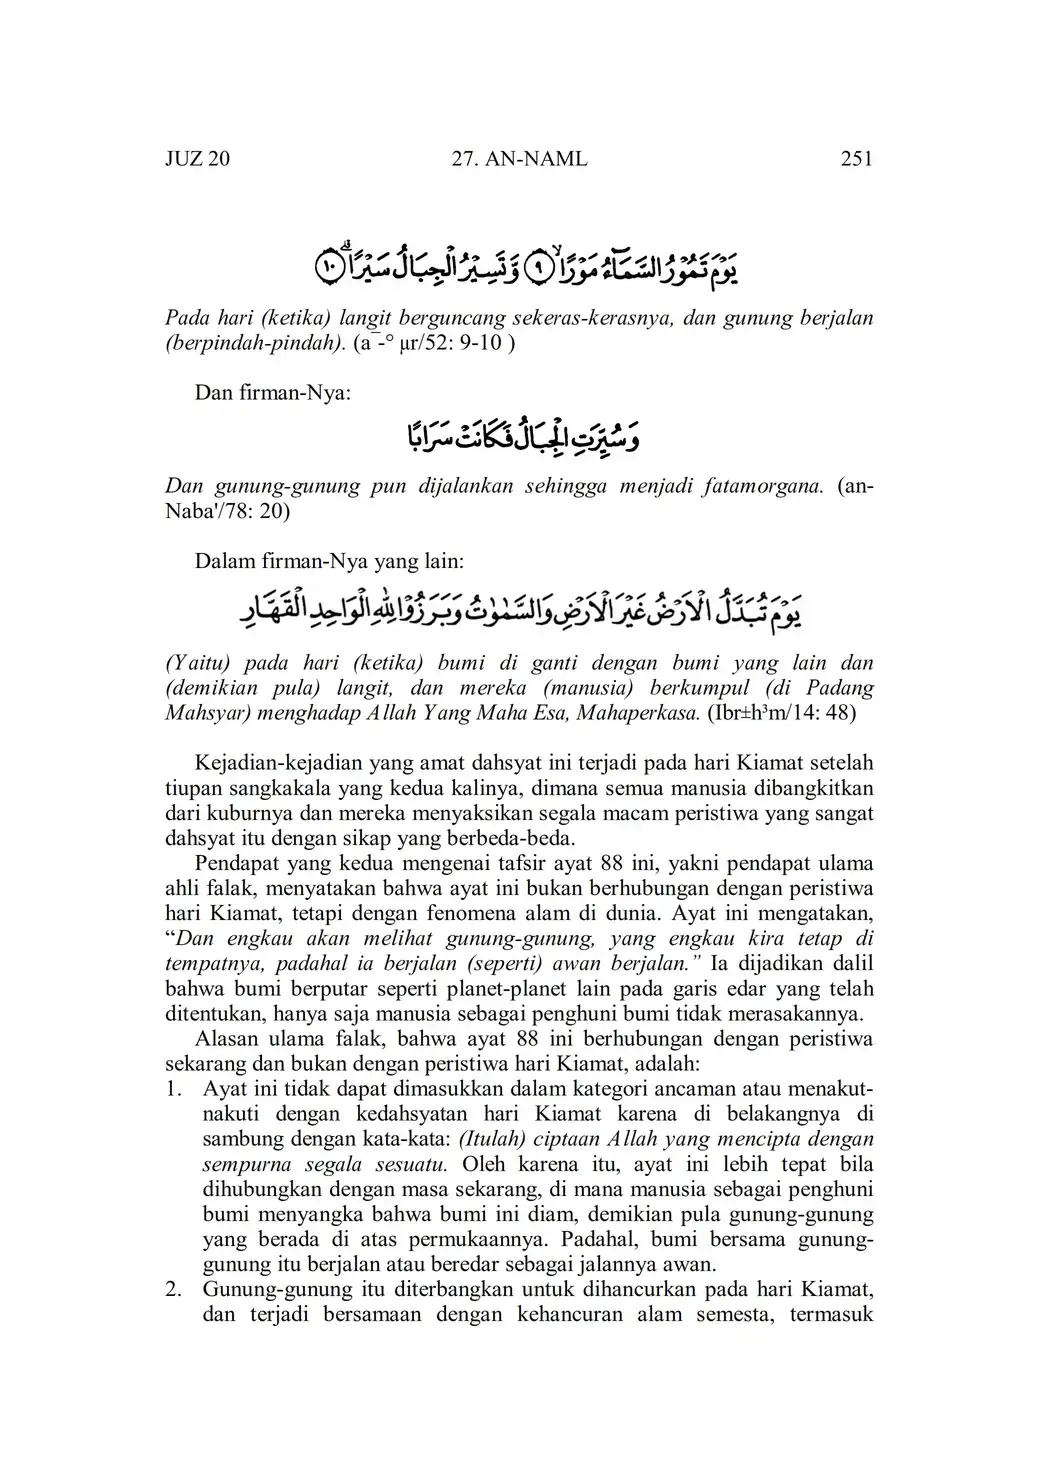 JUZ 20 27. AN-NAML 251
يَوْمَ تَمُوْرُ السَّمَاۤءُ مَوْرًاۙ ٩ وَّتَسِيْرُ الْجِبَالُ سَيْرًاۗ ١٠
Pada hari (ketika) langit berguncang sekeras-kerasnya, dan gunung berjalan
(berpindah-pindah). (a¯-° µr/52: 9-10 )
Dan firman-Nya:
وَسُيِّرَتِ الْجِبَالُ فَكَانَتْ سَرَابًا
Dan gunung-gunung pun dijalankan sehingga menjadi fatamorgana. (an-
Naba'/78: 20)
Dalam firman-Nya yang lain:
يَوْمَ تُبَدَّلُ الْاَرْضُ غَيْرَ الْاَرْضِ وَالسَّمٰوٰتُ وَبَرَزُوْا لِلّٰهِ الْوَاحِدِ الْقَهَّارِ
(Yaitu) pada hari (ketika) bumi di ganti dengan bumi yang lain dan
(demikian pula) langit, dan mereka (manusia) berkumpul (di Padang
Mahsyar) menghadap Allah Yang Maha Esa, Mahaperkasa. (Ibr±h³m/14: 48)
Kejadian-kejadian yang amat dahsyat ini terjadi pada hari Kiamat setelah
tiupan sangkakala yang kedua kalinya, dimana semua manusia dibangkitkan
dari kuburnya dan mereka menyaksikan segala macam peristiwa yang sangat
dahsyat itu dengan sikap yang berbeda-beda.
Pendapat yang kedua mengenai tafsir ayat 88 ini, yakni pendapat ulama
ahli falak, menyatakan bahwa ayat ini bukan berhubungan dengan peristiwa
hari Kiamat, tetapi dengan fenomena alam di dunia. Ayat ini mengatakan,
“Dan engkau akan melihat gunung-gunung, yang engkau kira tetap di
tempatnya, padahal ia berjalan (seperti) awan berjalan.” Ia dijadikan dalil
bahwa bumi berputar seperti planet-planet lain pada garis edar yang telah
ditentukan, hanya saja manusia sebagai penghuni bumi tidak merasakannya.
Alasan ulama falak, bahwa ayat 88 ini berhubungan dengan peristiwa
sekarang dan bukan dengan peristiwa hari Kiamat, adalah:
1. Ayat ini tidak dapat dimasukkan dalam kategori ancaman atau menakut-
nakuti dengan kedahsyatan hari Kiamat karena di belakangnya di
sambung dengan kata-kata: (Itulah) ciptaan Allah yang mencipta dengan
sempurna segala sesuatu. Oleh karena itu, ayat ini lebih tepat bila
dihubungkan dengan masa sekarang, di mana manusia sebagai penghuni
bumi menyangka bahwa bumi ini diam, demikian pula gunung-gunung
yang berada di atas permukaannya. Padahal, bumi bersama gunung-
gunung itu berjalan atau beredar sebagai jalannya awan.
2. Gunung-gunung itu diterbangkan untuk dihancurkan pada hari Kiamat,
dan terjadi bersamaan dengan kehancuran alam semesta, termasuk